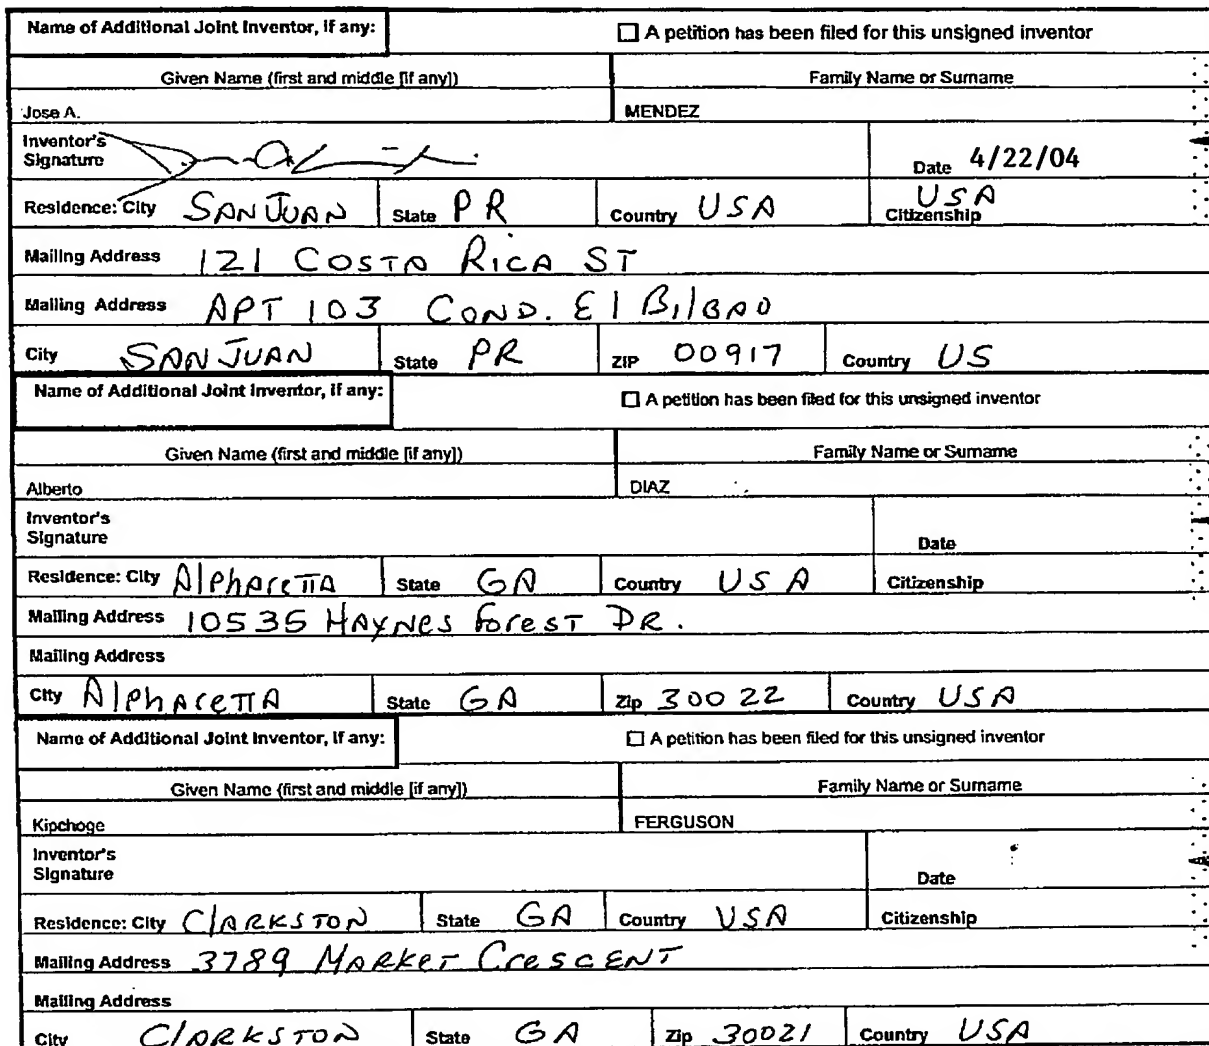 Name of Additional Joint Inventor, if any: ☐ A petition has been filed for this unsigned inventor
Given Name (first and middle [if any]) Family Name or Surname
Jose A. MENDEZ
Inventor's
Signature Date 4/22/04
Residence: City SAN JUAN State PR Country USA Citizenship USA
Mailing Address 121 COSTA RICA ST
Mailing Address APT 103 COND. El BilBAO
City SAN JUAN State PR ZIP 00917 Country US
Name of Additional Joint Inventor, if any: ☐ A petition has been filed for this unsigned inventor
Given Name (first and middle [if any]) Family Name or Surname
Alberto DIAZ
Inventor's
Signature Date
Residence: City AlphAreTTA State GA Country USA Citizenship
Mailing Address 10535 HAYNes forest DR.
Mailing Address
City AlphAreTTA State GA Zip 30022 Country USA
Name of Additional Joint Inventor, if any: ☐ A petition has been filed for this unsigned inventor
Given Name (first and middle [if any]) Family Name or Surname
Kipchoge FERGUSON
Inventor's
Signature Date
Residence: City ClARKSTON State GA Country USA Citizenship
Mailing Address 3789 MARKeT CresCENT
Mailing Address
City ClARKSTON State GA Zip 30021 Country USA